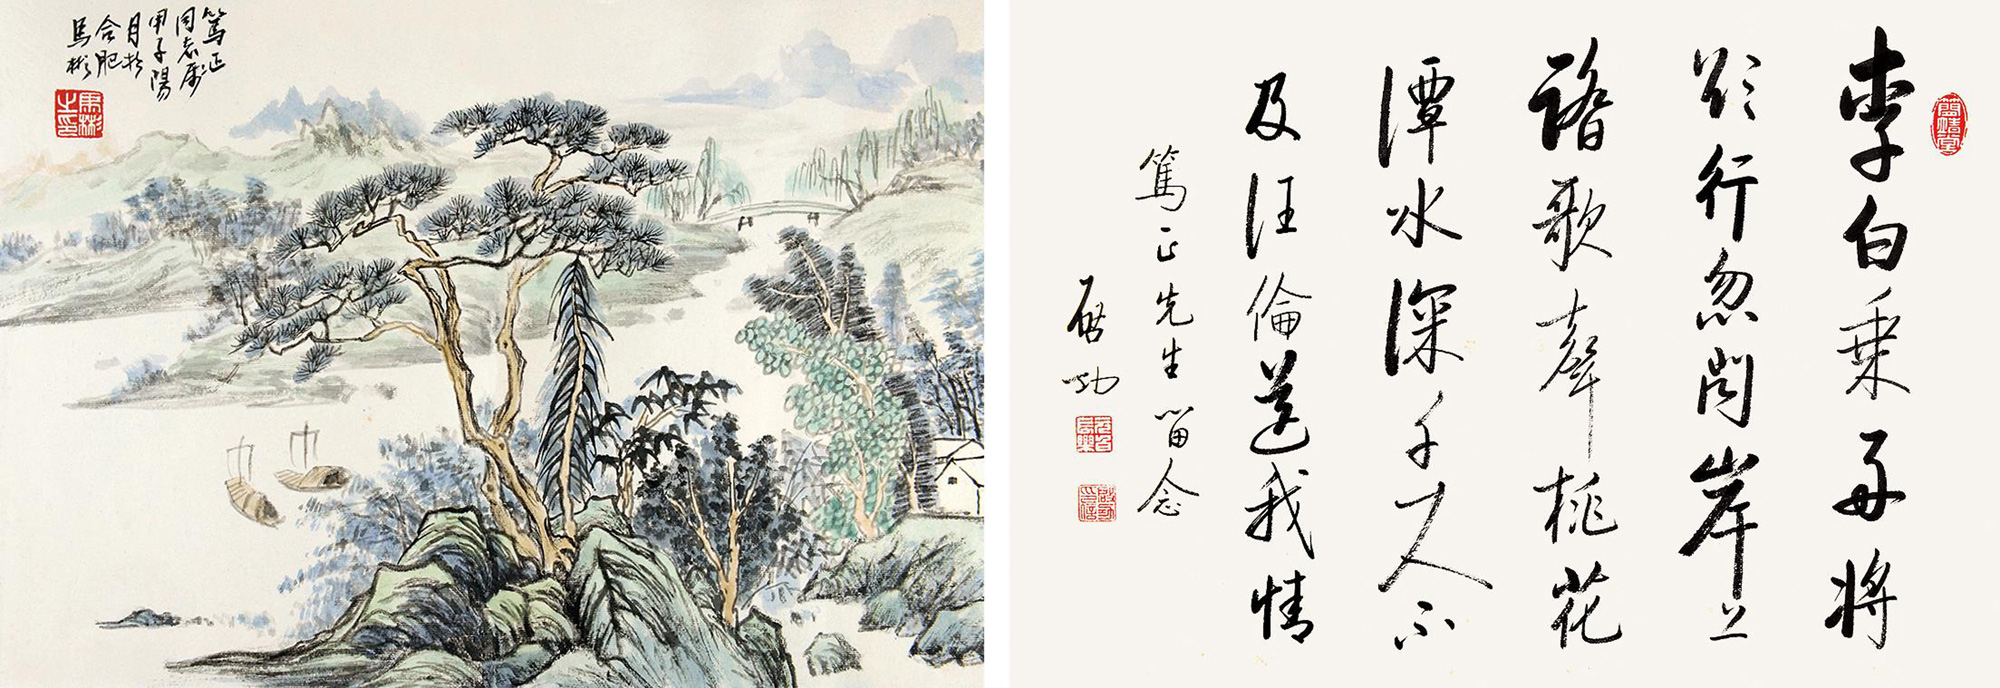 篤正
同志属
甲子陽
月於
合肥
馬彬
馬彬之印
簡靖堂
李白乗舟将
欲行忽闻岸上
踏歌聲桃花
潭水深千尺不
及汪倫送我情
篤正先生留念
啓功